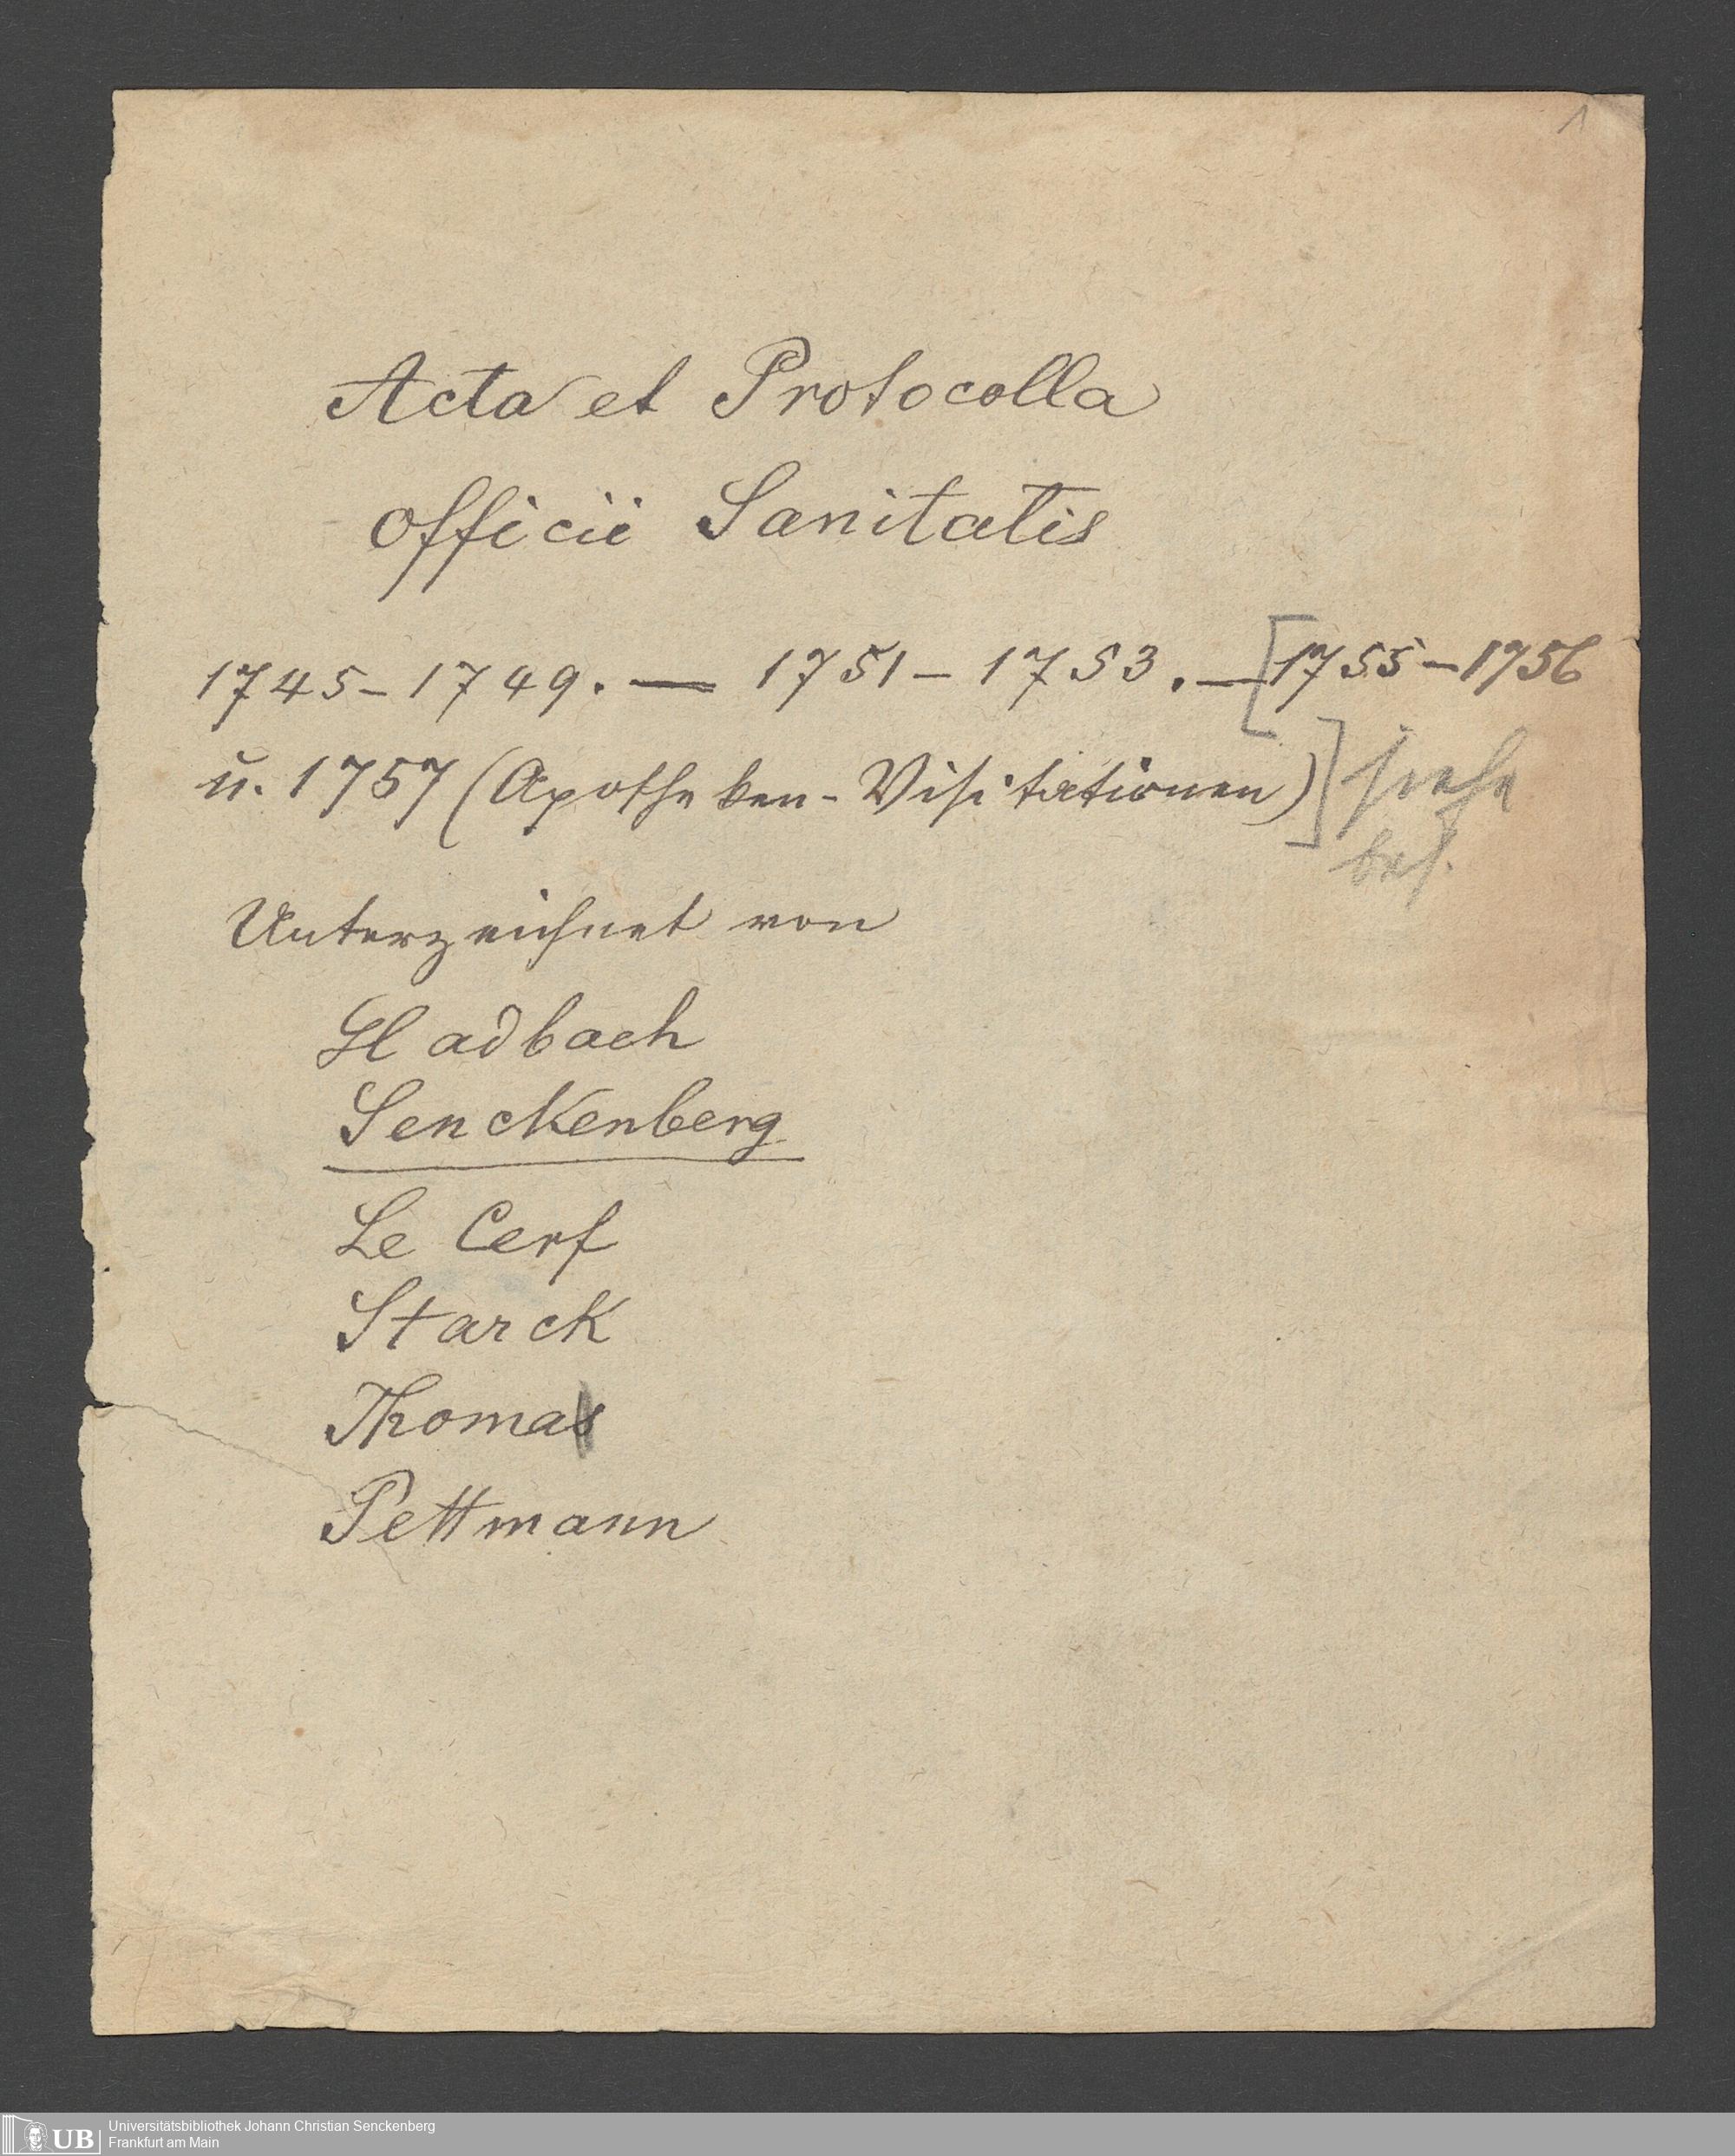 1
Acta et Protocolla
officii Sanitatis
1745-1749. — 1751-1753. — [1755-1756
u. 1757 (Apotheken-Visitationen)] siehe
bes.
Unterzeichnet von
Gladbach
Senckenberg
Le Cerf
Starck
Thomas
Pettmann
UB Universitätsbibliothek Johann Christian Senckenberg
Frankfurt am Main